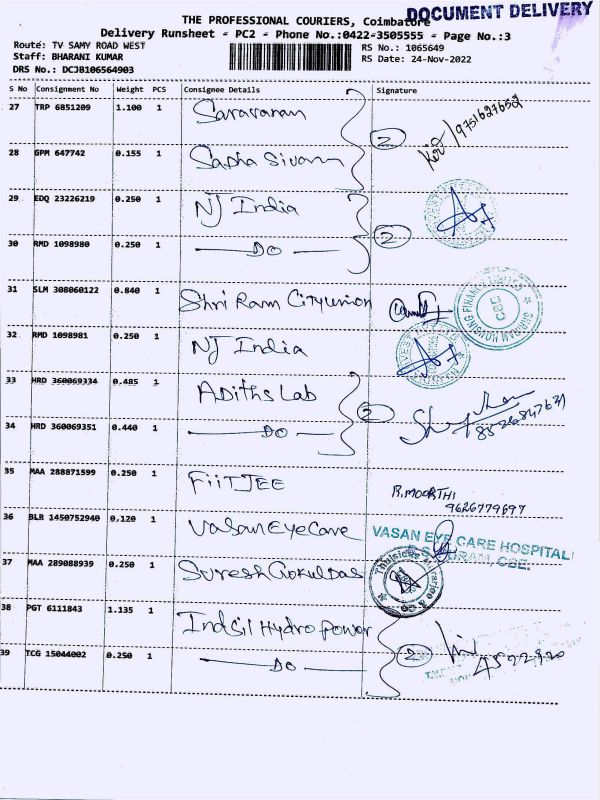 DOCUMENT DELIVERY
THE PROFESSIONAL COURIERS, Coimbatore
Delivery Runsheet - PC2 - Phone No.:0422-3505555 - Page No.:3
Route: TV SAMY ROAD WEST
RS No.: 1065649
Staff: BHARANI KUMAR
RS Date: 24-Nov-2022
DRS No.: DCJB106564903
S No Consignment No Weight PCS Consignee Details Signature
27 TRP 6851209 1.100 1 Saravanan
2 9751627652
28 GPM 647742 0.155 1 Sadha Sivam
29 EDQ 23226219 0.250 1 NJ India
30 RMD 1098980 0.250 1 DO 2
31 SLM 308060122 0.840 1 Shri Ram City union
32 RMD 1098981 0.250 1 NJ India
33 HRD 360069334 0.485 1 ADiths Lab
2
34 HRD 360069351 0.440 1 DO
35 MAA 288871599 0.250 1 FiiTJEE R.MOORTHI
9626779697
36 BLR 1450752940 0.120 1 Vasan Eye Care
VASAN EYE CARE HOSPITAL
37 MAA 289088939 0.250 1 Suresh Gokul Das
38 PGT 6111843 1.135 1 Indsil Hydro power
39 TCG 15044002 0.250 1 DO 2